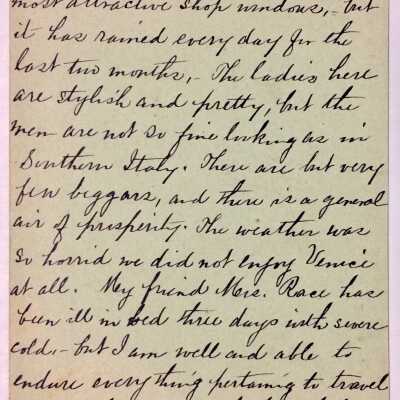 most attractive shop windows, - but
it has rained every day for the
last two months, - The ladies here
are stylish and pretty, but the
men are not so fine looking as in
Southern Italy. There are but very
few beggars, and there is a general
air of prosperity. The weather was
so horrid we did not enjoy Venice
at all. My friend Mrs. Race has
been ill in bed three days with severe
cold, - but I am well and able to
endure everything pertaining to travel